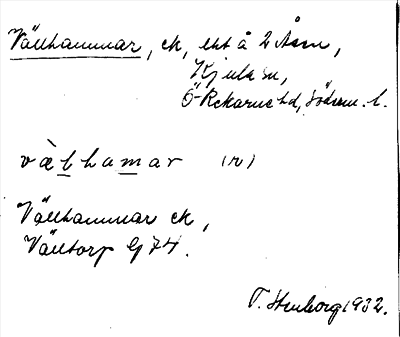 Vällhammar, ek, utt å 2 Åsm,
Kjula sn,
Ö-Rekarne hd, Söderm. l.
vàlhamar (r)
Vällhammar ek,
Välltorp Gj 74.
T. Stenborg 1932.